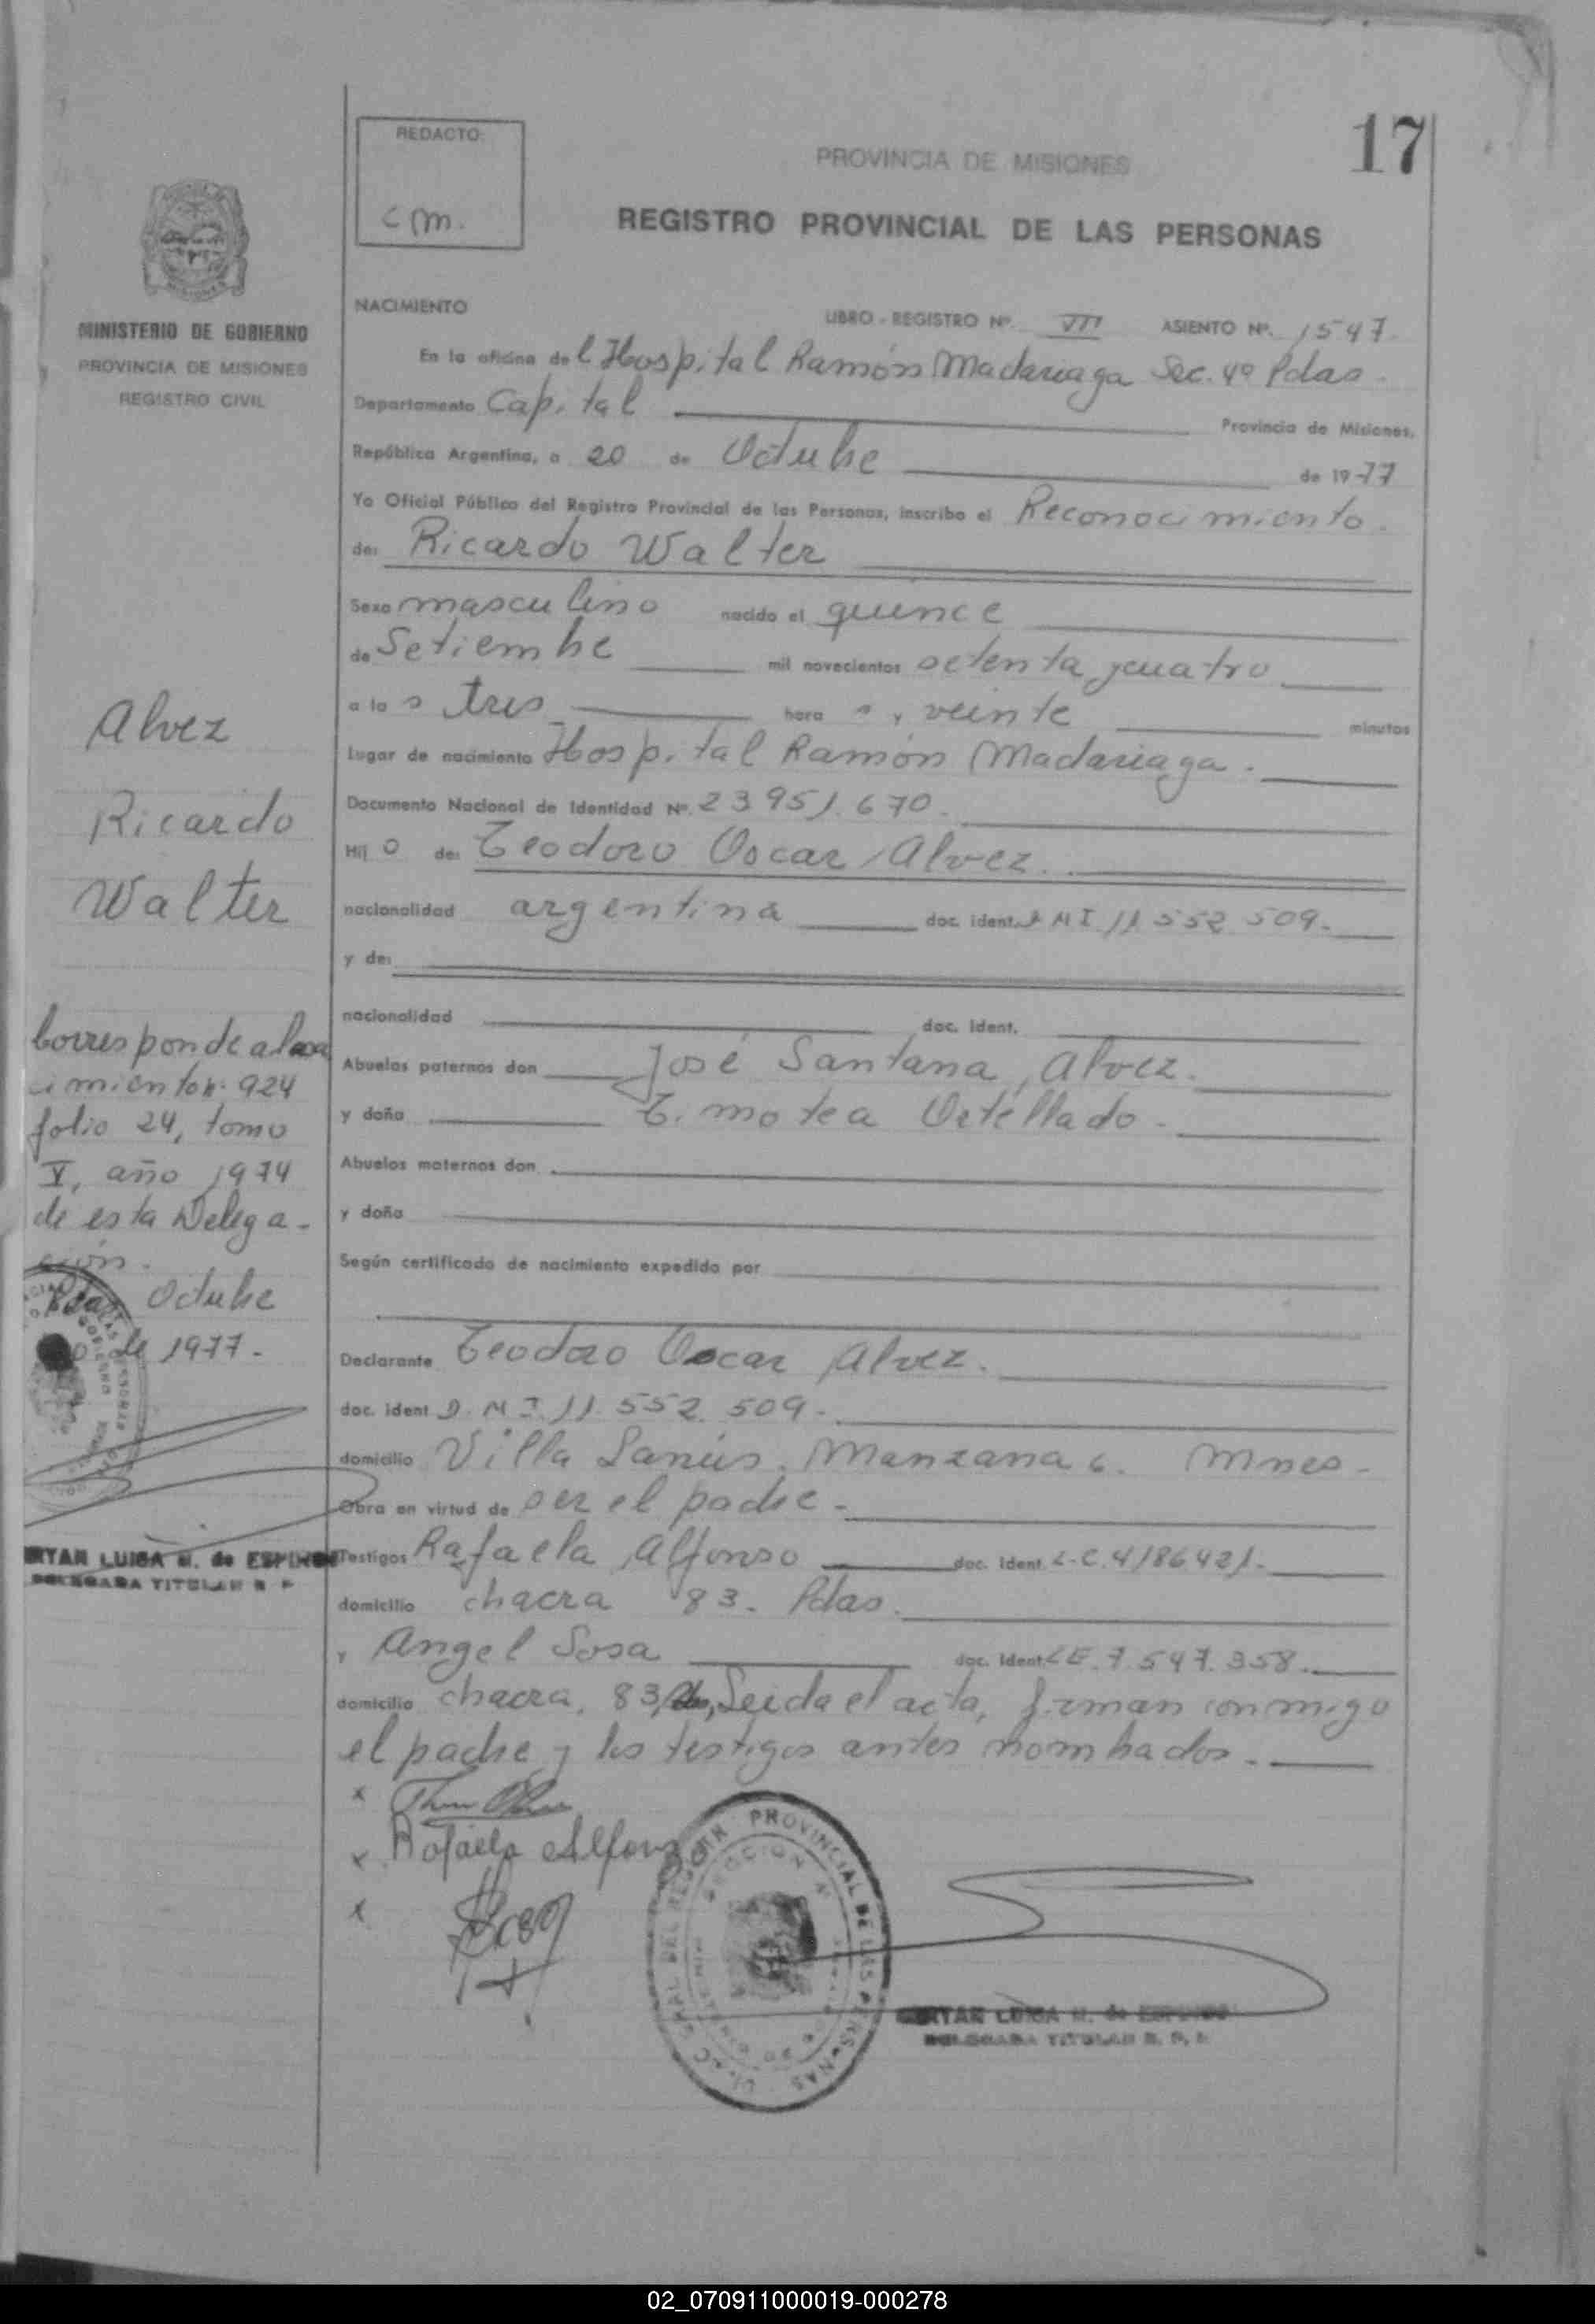 17
REDACTO:
cm.
PROVINCIA DE MISIONES
REGISTRO PROVINCIAL DE LAS PERSONAS
MISIONES
MINISTERIO DE GOBIERNO
PROVINCIA DE MISIONES
REGISTRO CIVIL
NACIMIENTO
LIBRO - REGISTRO Nº. VIII ASIENTO Nº. 1547.
En la oficina del Hospital Ramón Madariaga Sec. 4º Pdas.
Departamento Capital Provincia de Misiones,
República Argentina, a 20 de Octubre de 1977
Yo Oficial Público del Registro Provincial de las Personas, inscribo el Reconocimiento.
de: Ricardo Walter
Sexo masculino nacido el quince
de Setiembre mil novecientos setenta y cuatro
a las tres horas y veinte minutos
Lugar de nacimiento Hospital Ramón Madariaga.
Documento Nacional de Identidad Nº. 23951.670.
Hijo de: Teodoro Oscar Alvez.
nacionalidad argentina doc. ident. D N I. 11 552 509.
y de:
nacionalidad doc. ident.
Abuelos paternos don José Santana Alvez.
y doña Timotea Ortellado.
Abuelos maternos don
y doña
Según certificado de nacimiento expedido por
Declarante Teodoro Oscar Alvez.
doc. ident D. N I. 11. 552. 509.
domicilio Villa Lanús. Manzana 6. Mnes.
Obra en virtud de ser el padre.
Testigos Rafaela Alfonso doc. ident. L.C. 4186421.
domicilio chacra 83. Pdas.
y Angel Sosa doc. ident. LE. 7.547.358.
domicilio chacra, 83, Leida el acta, firman conmigo
el padre y los testigos antes nombrados.
x
x Rafaela Alfonso
x
Alvez
Ricardo
Walter
Corresponde al na
cimiento n: 924
folio 24, tomo
V, año 1974
de esta Delega-
ción.
Pdas Octubre
20 de 1977.
LUISA M. de
DELEGADA TITULAR R. P.
PROVINCIAL DE LAS PERSONAS
LUISA M. de
DELEGADA TITULAR R. P.
02_070911000019-000278